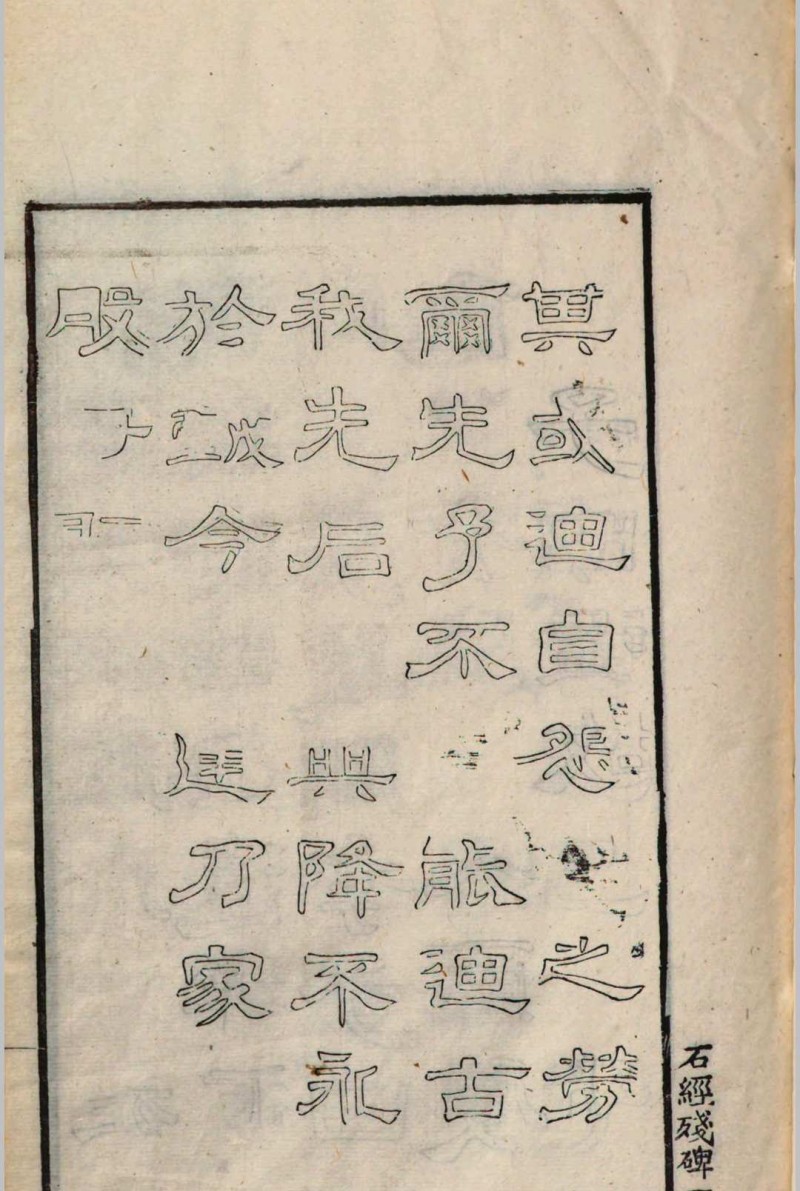 其或迪自怨之勞
爾先予不能迪古
我先后興降不永
於戲今建乃家
般
石經殘碑